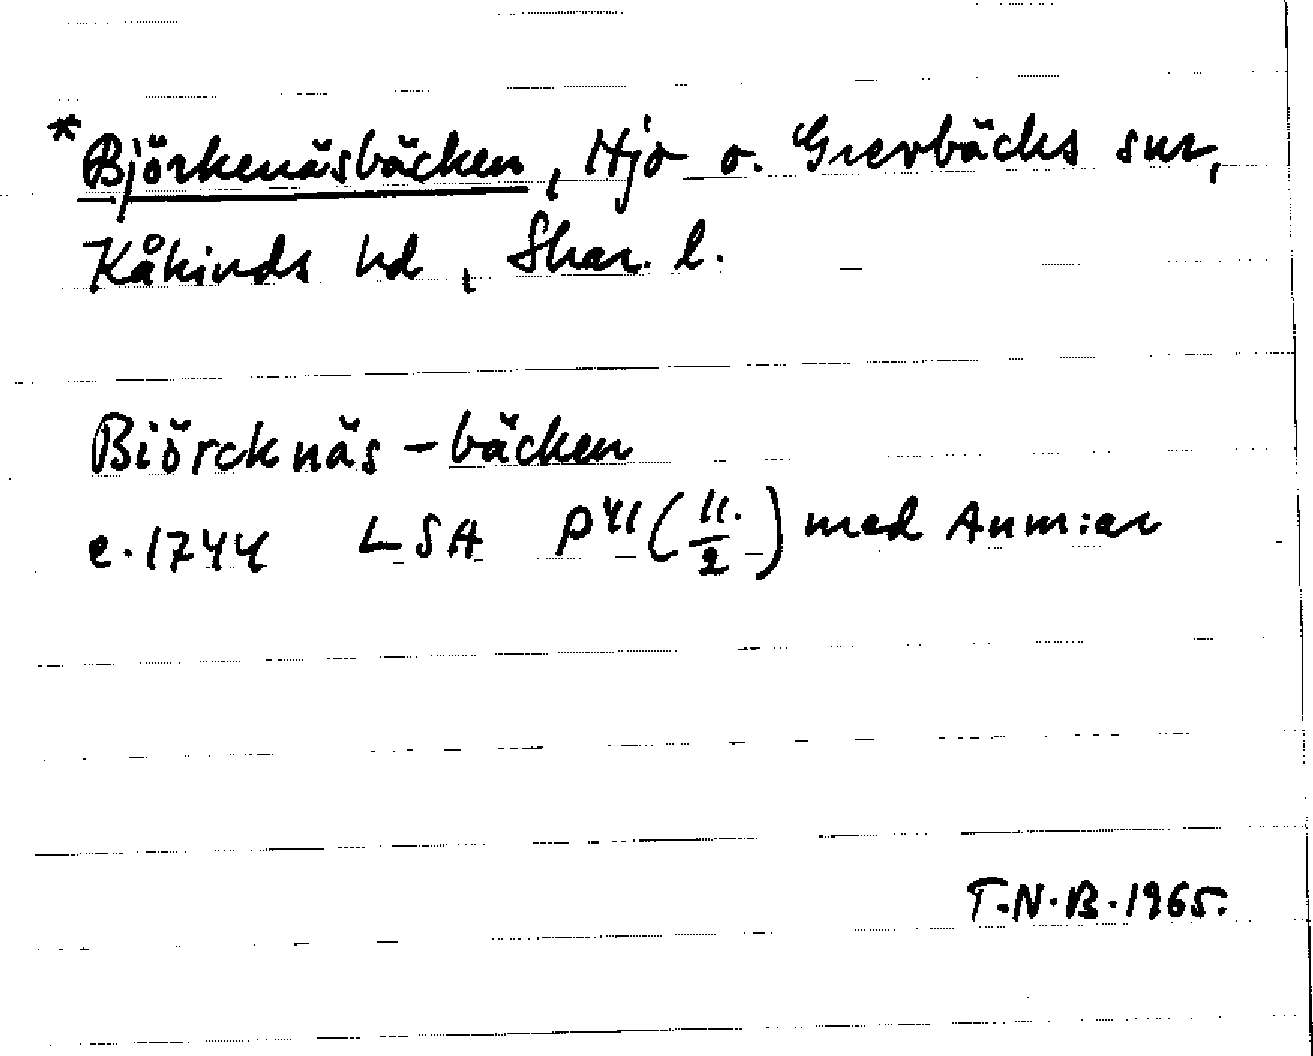 *Björkenäsbäcken, Hjo o. Grevbäcks snr,
Kåkinds hd, Skar. l.
Biörcknäs-bäcken
c. 1744 LSA P41 (11./2) med Anm:ar
T.N.B. 1965.